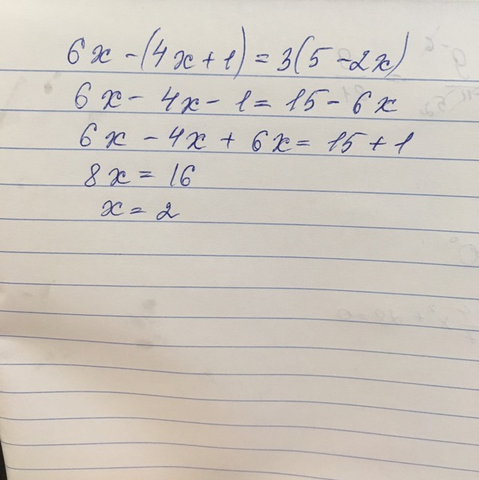 6x-(4x+1)=3(5-2x)
6x-4x-1=15-6x
6x-4x+6x=15+1
8x=16
x=2